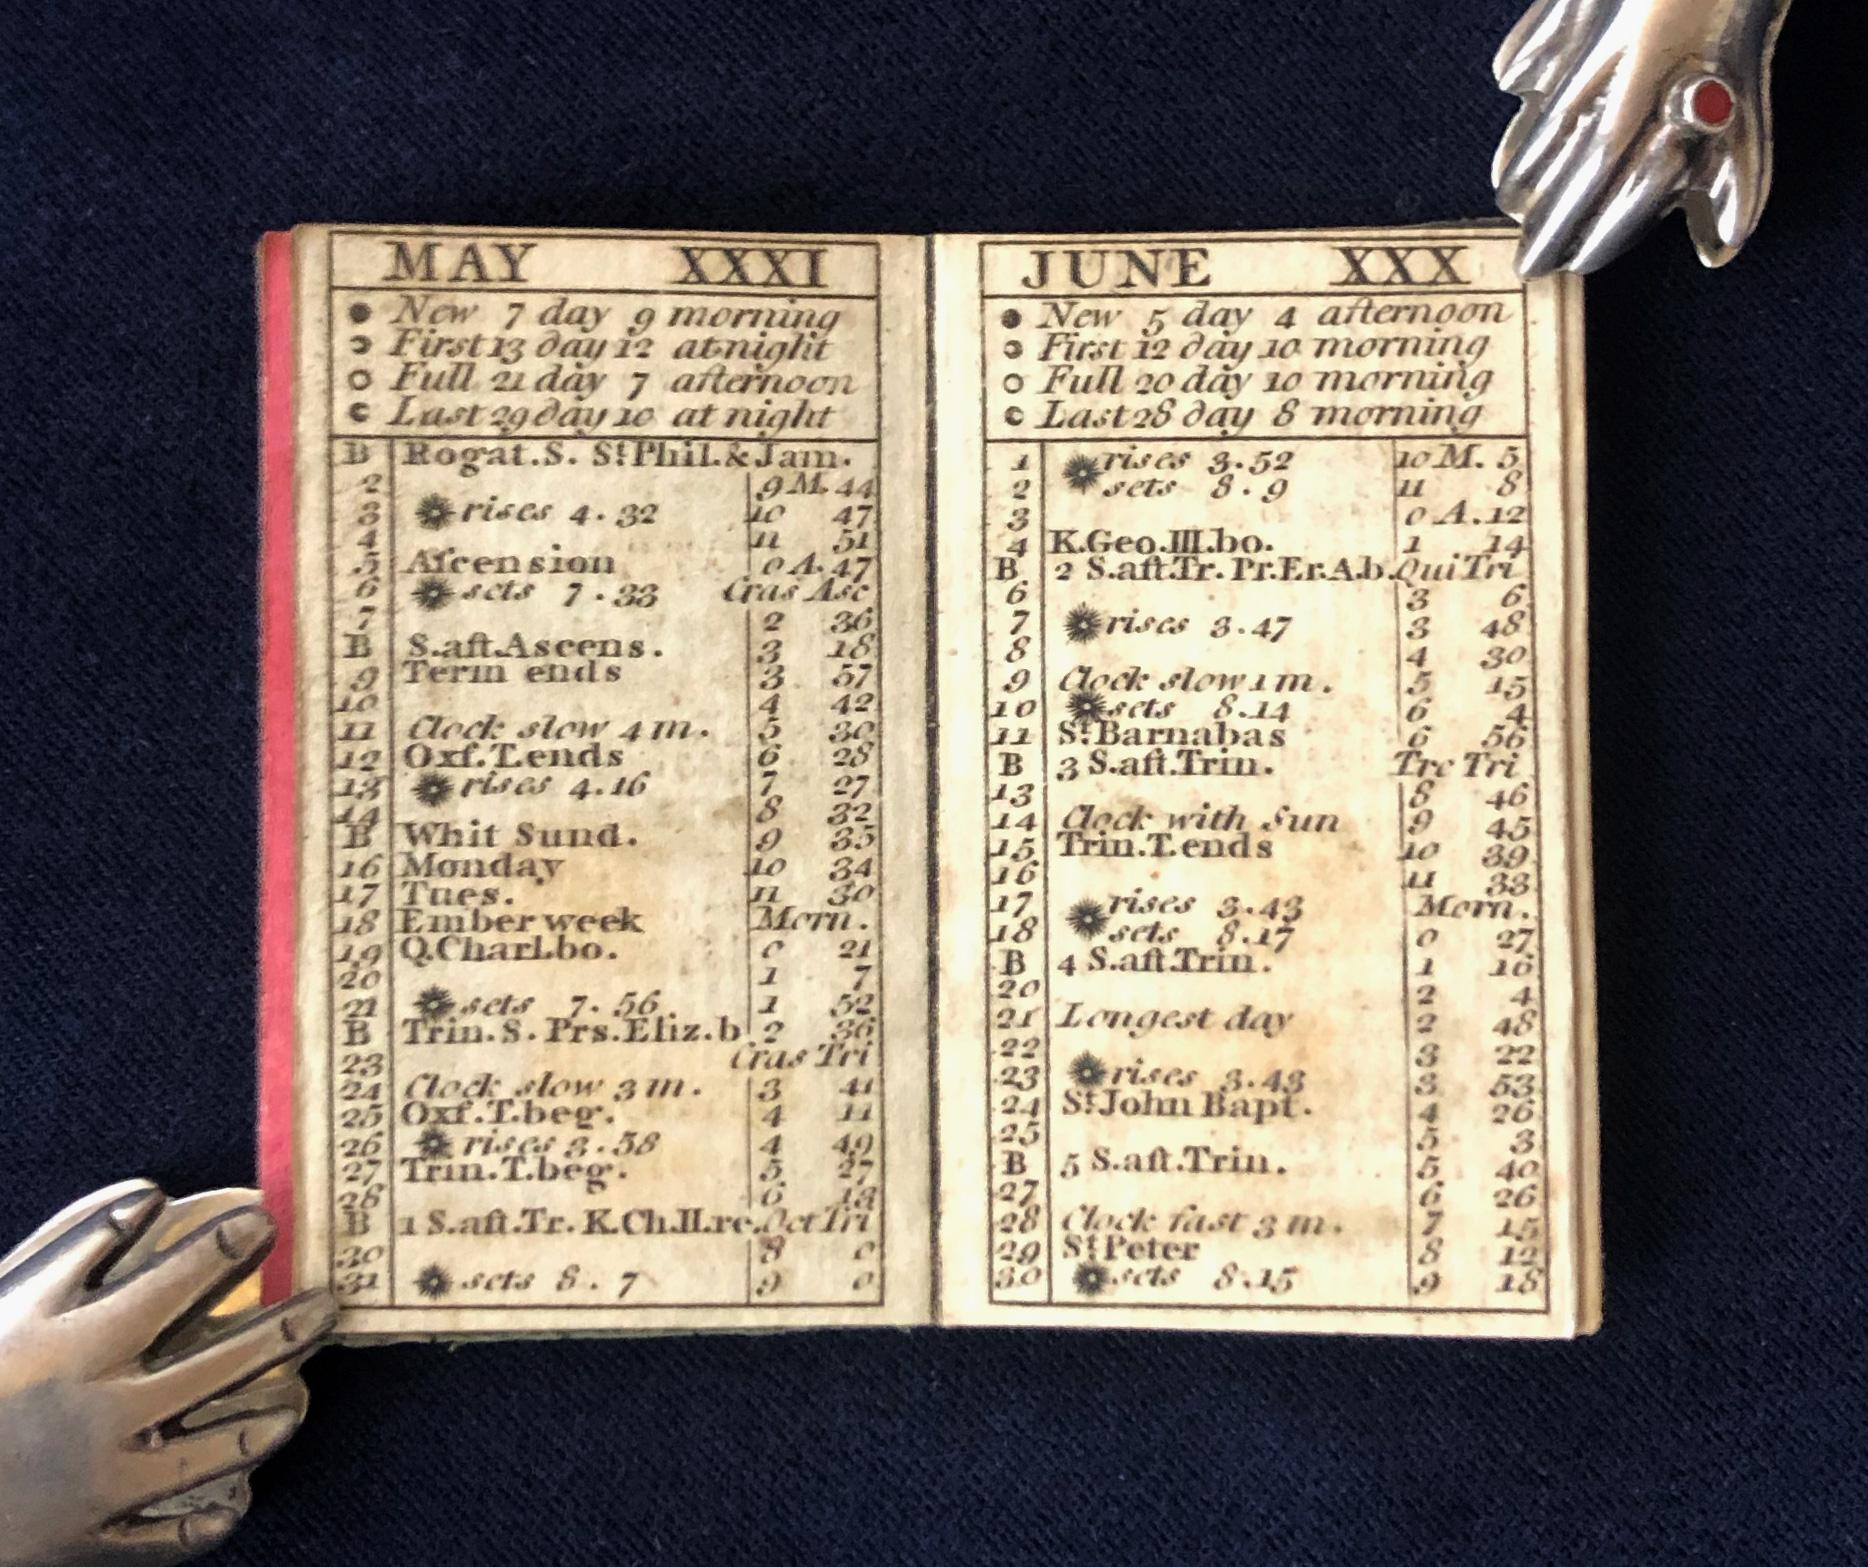 MAY XXXI
● New 7 day 9 morning
First 13 day 12 at night
○ Full 21 day 7 afternoon
Last 29 day 10 at night
B Rogat.S. St Phil.& Jam.
2 9 M. 44
3 rises 4.32 10 47
4 11 51
5 Ascension 0 A. 47
6 sets 7.33 Cras Asc
7 2 36
B S.aft.Ascens. 3 18
9 Term ends 3 57
10 4 42
11 Clock slow 4 m. 5 30
12 Oxf.T.ends 6 28
13 rises 4.16 7 27
14 8 32
B Whit Sund. 9 35
16 Monday 10 34
17 Tues. 11 30
18 Ember week Morn.
19 Q.Charl.bo. 0 21
20 1 7
21 sets 7.56 1 52
B Trin.S. Prs.Eliz.b 2 36
23 Cras Tri
24 Clock slow 3 m. 3 41
25 Oxf.T.beg. 4 11
26 rises 3.58 4 49
27 Trin.T.beg. 5 27
28 6 13
B 1 S.aft.Tr. K.Ch.II.re. Oct Tri
30 8 0
31 sets 8.7 9 0
JUNE XXX
● New 5 day 4 afternoon
First 12 day 10 morning
○ Full 20 day 10 morning
Last 28 day 8 morning
1 rises 3.52 10 M. 5
2 sets 8.9 11 8
3 0 A.12
4 K.Geo.III.bo. 1 14
B 2 S.aft.Tr. Pr.Er.A.b. Qui Tri
6 3 6
7 rises 3.47 3 48
8 4 30
9 Clock slow 1 m. 5 15
10 sets 8.14 6 4
11 St Barnabas 6 56
B 3 S.aft.Trin. Tre Tri
13 8 46
14 Clock with Sun 9 45
15 Trin.T.ends 10 39
16 11 33
17 rises 3.43 Morn.
18 sets 8.17 0 27
B 4 S.aft.Trin. 1 16
20 2 4
21 Longest day 2 48
22 3 22
23 rises 3.43 3 53
24 St John Bapt. 4 26
25 5 3
B 5 S.aft.Trin. 5 40
27 6 26
28 Clock fast 3 m. 7 15
29 St Peter 8 12
30 sets 8.15 9 18